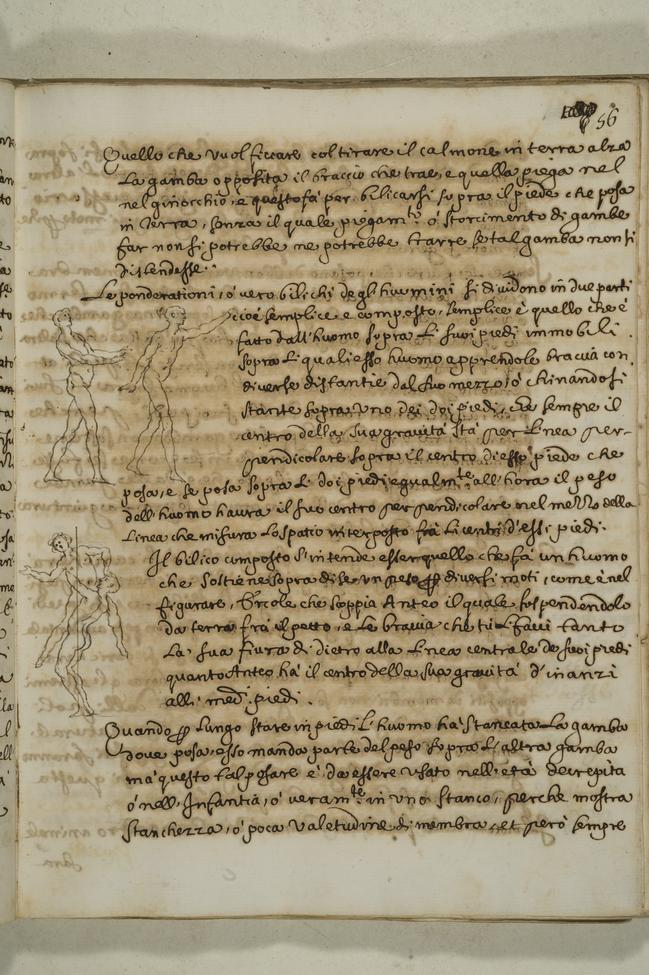 56
Quello che vuol ficcare col tirare il calmone in terra alza
La gamba opposita il braccio che trae, e quella piega nel
nel ginocchio, e questo fa per bilicarsi sopra il piede che posa
in terra, senza il quale piegam.ti o storcimento di gambe
far non si potrebbe ne potrebbe trarre se tal gamba non si
distendesse.
Le ponderationi, o vero bilichi degl'huomini si dividono in due parti
cioè semplice e composto, semplice è quello che è
fatto dall'huomo sopra li suoi piedi immobili.
sopra li quali esso huomo apprendole braccia con
diverse distantie dal suo mezzo, o chinandosi
stante sopra uno dei doi piedi, sempre il
centro della sua gravità sta per linea per-
pendicolare sopra il centro di esso piede che
posa, e se posa sopra li doi piedi egualm.te all'hora il peso
dell'huomo haura il suo centro perpendicolare nel mezzo della
linea che misura lo spatio interposto frà li centri d'essi piedi.
Il bilico composto s'intende esser quello che fà un huomo
che sostiene sopra di se un peso diversi moti, come è nel
figurare, Ercole che scoppia Anteo il quale sospendendolo
da terra frà il petto, e le braccia che tu li facci tanto
la sua fiura di dietro alla linea centrale de suoi piedi
quanto Anteo hà il centro della sua gravità d'inanzi
alli med.i piedi.
Quando lungo stare in piedi l'huomo hà stancata la gamba
dove posa, esso manda parte del peso sopra l'altra gamba
ma questo tal posare è da essere usato nell'età decrepita
o nell'Infantia, o veram.te in uno stanco, perche mostra
stanchezza, o poca valetudine di membra, et però sempre